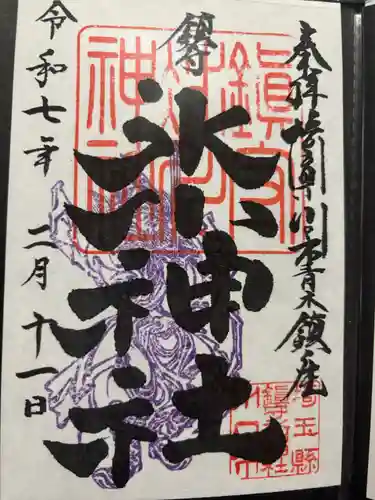 奉拝 埼玉県川口市青木鎮座
鎮守
氷川神社
令和七年二月十一日
鎮守
氷川
神社
埼玉縣
川口市